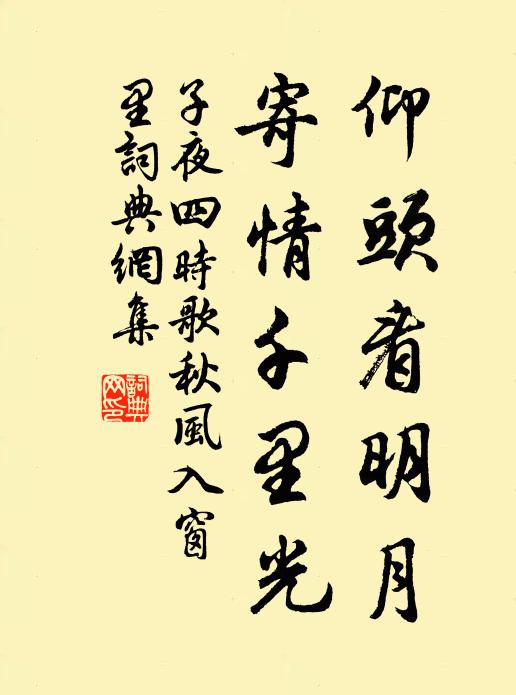 仰頭看明月
寄情千里光
子夜四時歌秋風入窗
里詞典網集
詞典网印